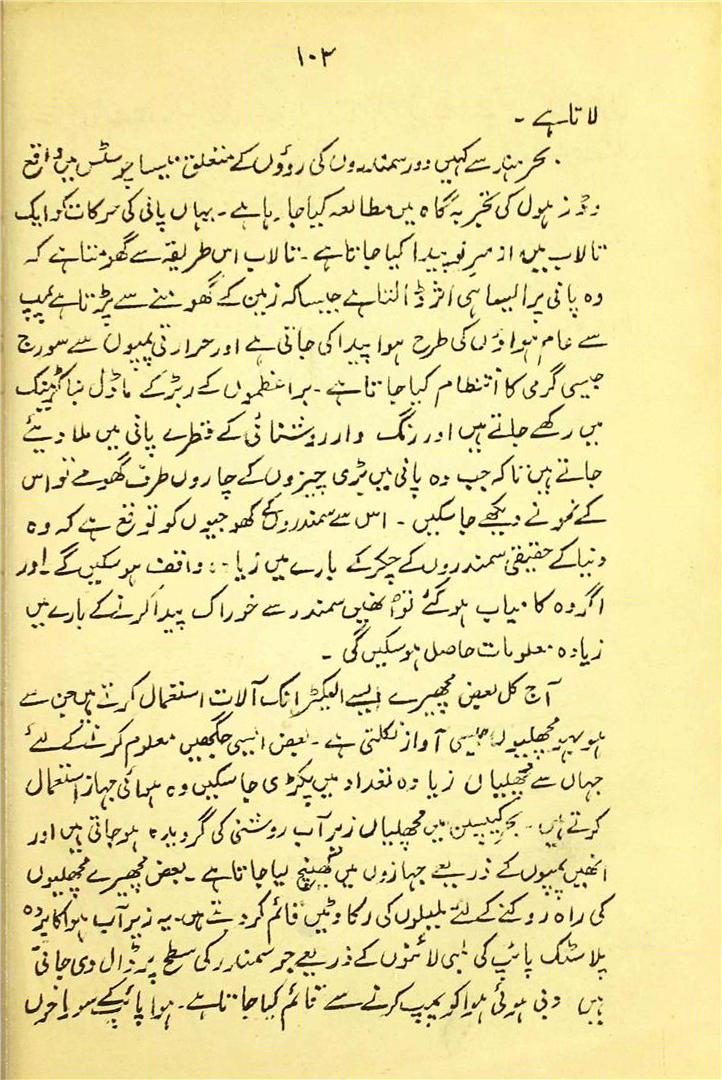 ۱۰۳
لاتا ہے ۔
بحر ہند سے کہیں دور سمندروں کی روؤں کے متعلق میساچوسٹس میں واقع
ووڈز ہول کی تجربہ گاہ میں مطالعہ کیا جا رہا ہے ۔ یہاں پانی کی حرکات کو ایک
تالاب میں از سر نو پیدا کیا جاتا ہے ۔ تالاب اس طریقہ سے گھومتا ہے کہ
وہ پانی پر ایسا ہی اثر ڈالتا ہے جیسا کہ زمین کے گھومنے سے پڑتا ہے پمپ
سے عام ہواؤں کی طرح ہوا پیدا کی جاتی ہے اور حرارتی لیمپوں سے سورج
جیسی گرمی کا انتظام کیا جاتا ہے ۔ براعظموں کے ربڑ کے ماڈل بنا کر ٹینک
میں رکھے جاتے ہیں اور رنگ دار روشنائی کے قطرے پانی میں ملا دیئے
جاتے ہیں تاکہ جب وہ پانی میں بڑی چیزوں کے چاروں طرف گھومے تو اس
کے نمونے دیکھے جا سکیں ۔ اس سے سمندروں کے کھوجیوں کو توقع ہے کہ وہ
دنیا کے حقیقی سمندروں کے چکر کے بارے میں زیادہ واقف ہو سکیں گے ۔ اور
اگر وہ کامیاب ہو گئے تو انھیں سمندر سے خوراک پیدا کرنے کے بارے میں
زیادہ معلومات حاصل ہو سکیں گی ۔
آج کل بعض مچھیرے ایسے الیکٹرانک آلات استعمال کرتے ہیں جن سے
ہو بہو مچھلیوں جیسی آواز نکلتی ہے ۔ بعض ایسی جگہیں معلوم کرنے کے لئے
جہاں سے مچھلیاں زیادہ تعداد میں پکڑی جا سکیں وہ ہوائی جہاز استعمال
کرتے ہیں ۔ بحر کیسپین میں مچھلیاں زیر آب روشنی کی گرویدہ ہو جاتی ہیں اور
انھیں پمپوں کے ذریعے جہازوں میں کھینچ لیا جاتا ہے ۔ بعض مچھیرے مچھلیوں
کی راہ روکنے کے لئے بلبلوں کی رکاوٹیں قائم کر دیتے ہیں ۔ یہ زیر آب ہوا کا پردہ
پلاسٹک پائپ کی لمبی لائنوں کے ذریعے جو سمندر کی سطح پر ڈال دی جاتی
ہیں دبی ہوئی ہوا کو پمپ کرنے سے قائم کیا جاتا ہے ۔ ہوا پائپ کے سوراخوں